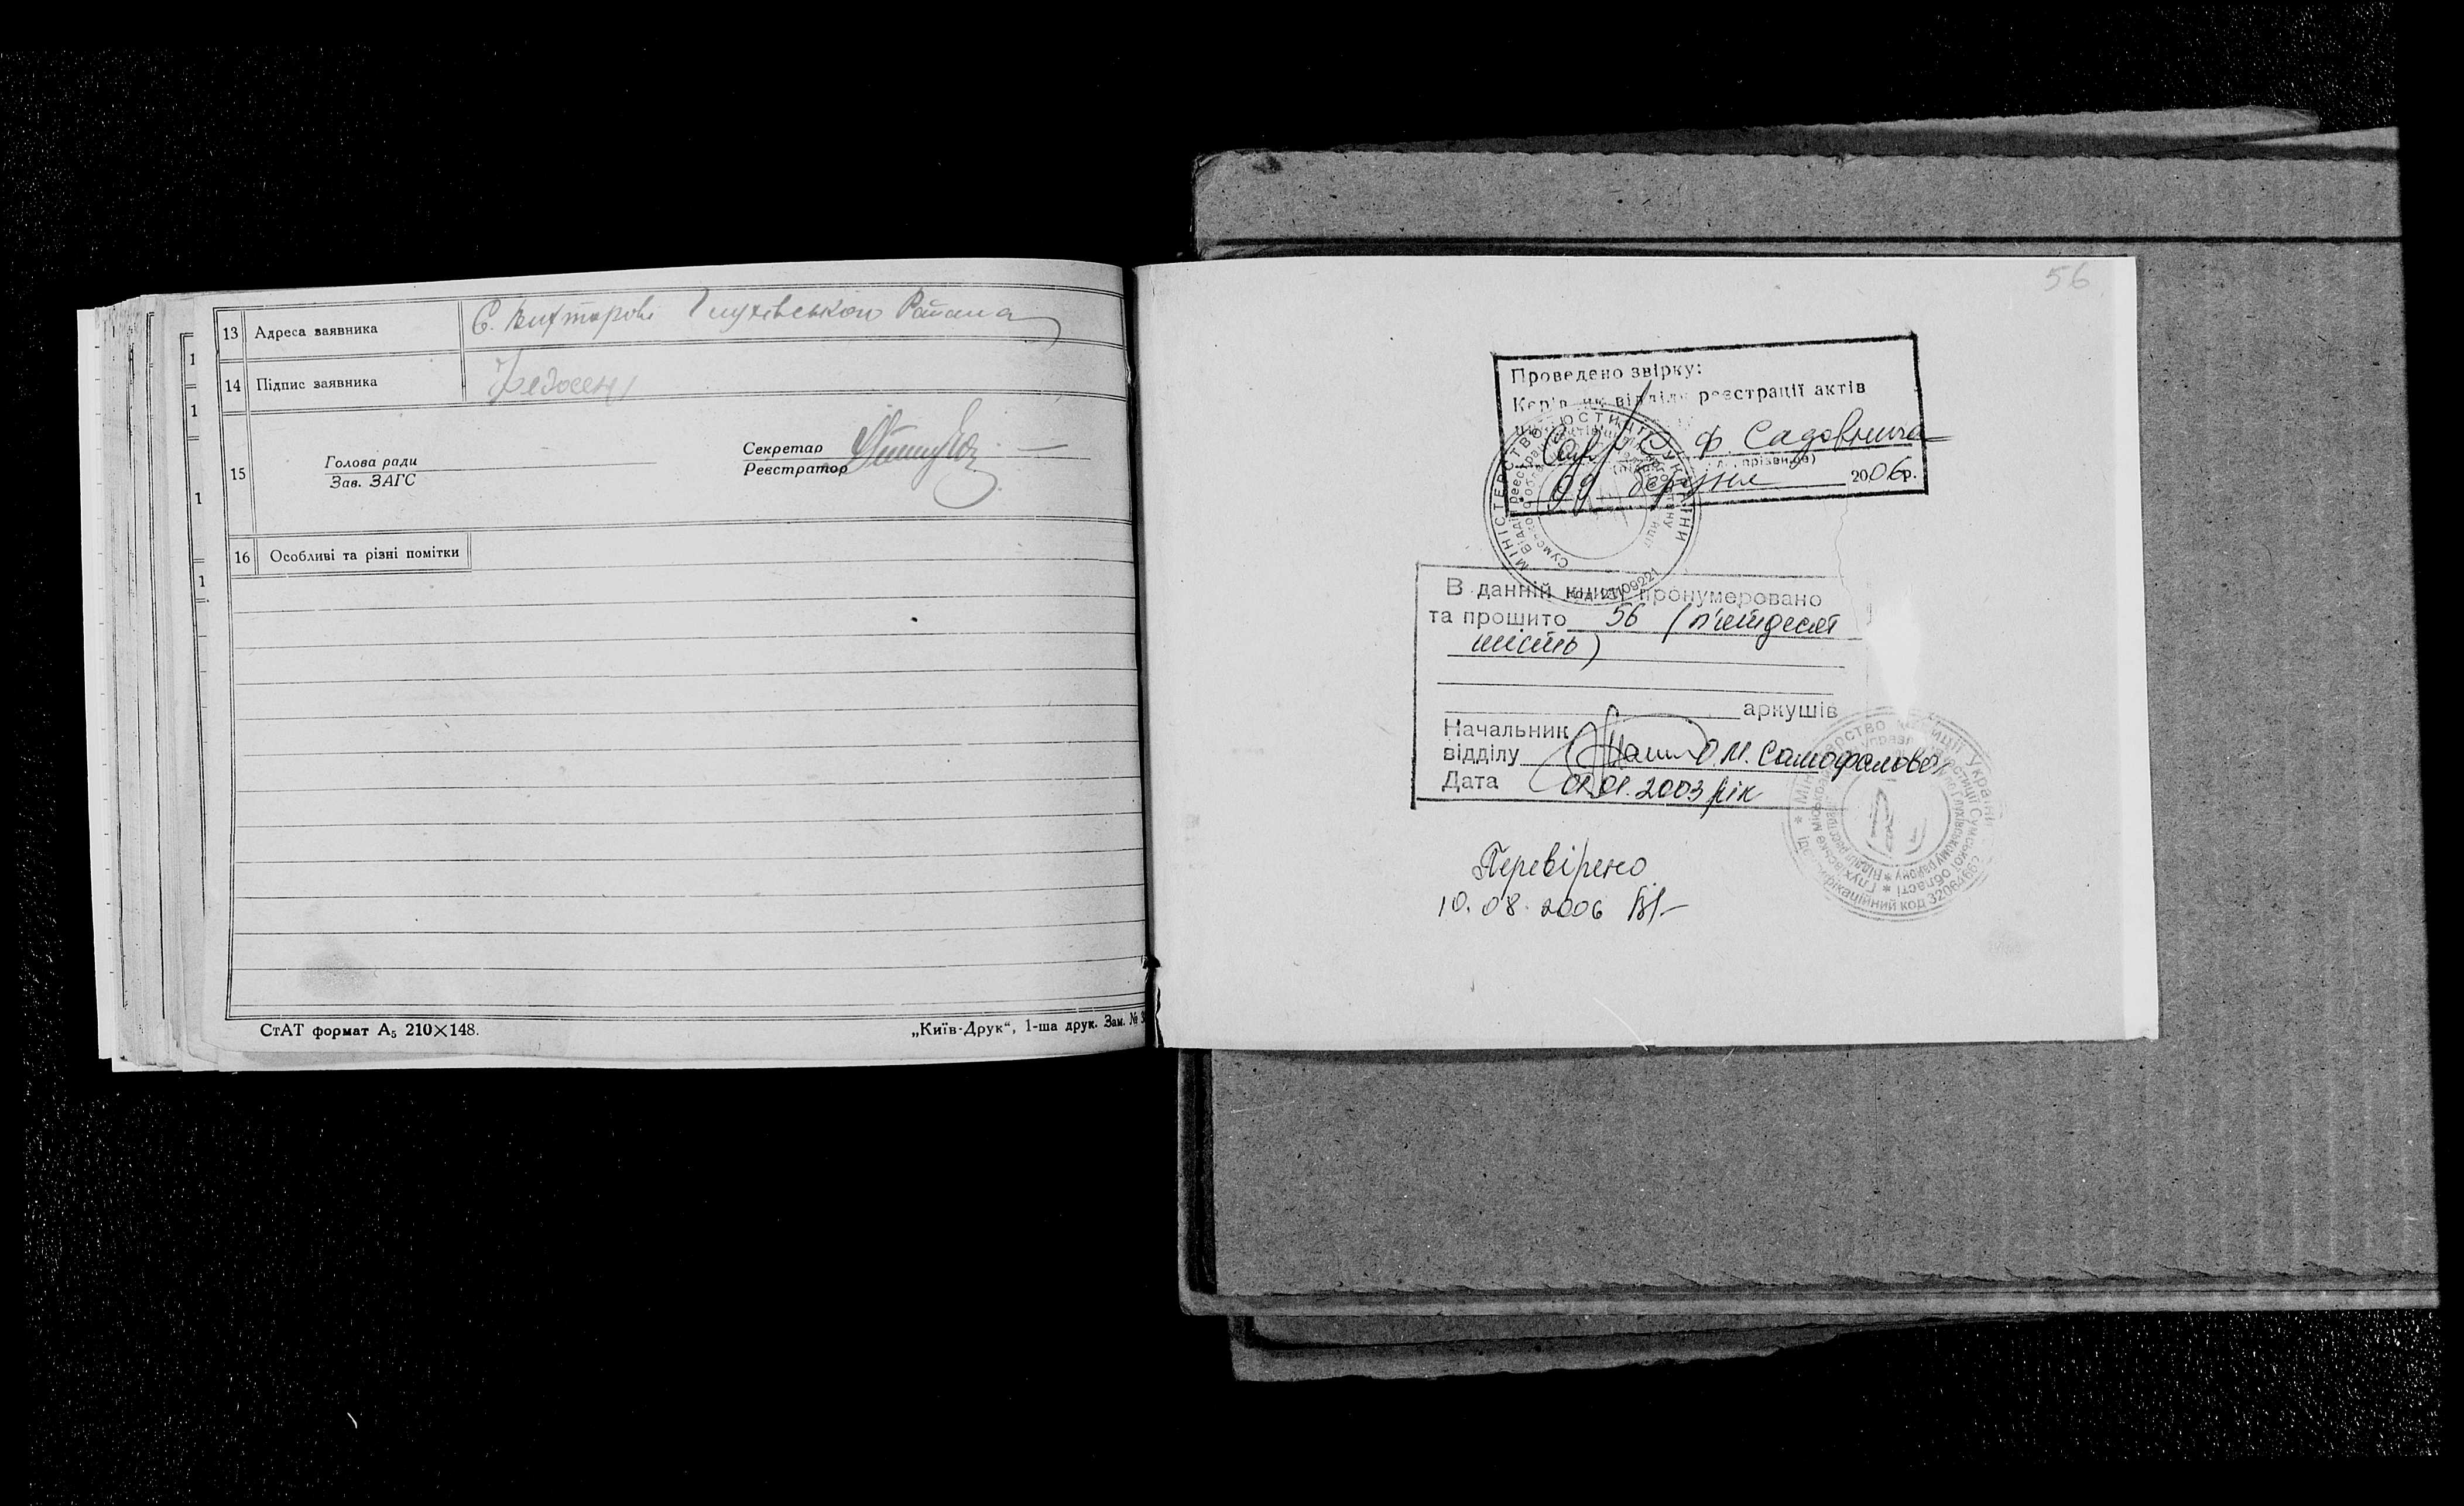 13 Адреса заявника С. Вихторові Глухівського Района
14 Підпис заявника
15 Голова ради
Зав. ЗАГС
Секретар
Реєстратор
16 Особливі та різні помітки
СтАТ формат А₅ 210×148.
„Київ-Друк“, 1-ша друк. Зам. №
56
Проведено звірку:
Керівник відділу реєстрації актів
Ф. Садовнича
09 березня 2006р.
МІНІСТЕРСТВО ЮСТИЦІЇ УКРАЇНИ
В данній книзі пронумеровано
та прошито 56 (п'ятдесят
шість)
аркушів
Начальник
відділу О.М. Самофалова
Дата 01.01.2003 рік
Міністерство юстиції України
Перевірено
10.08.2006